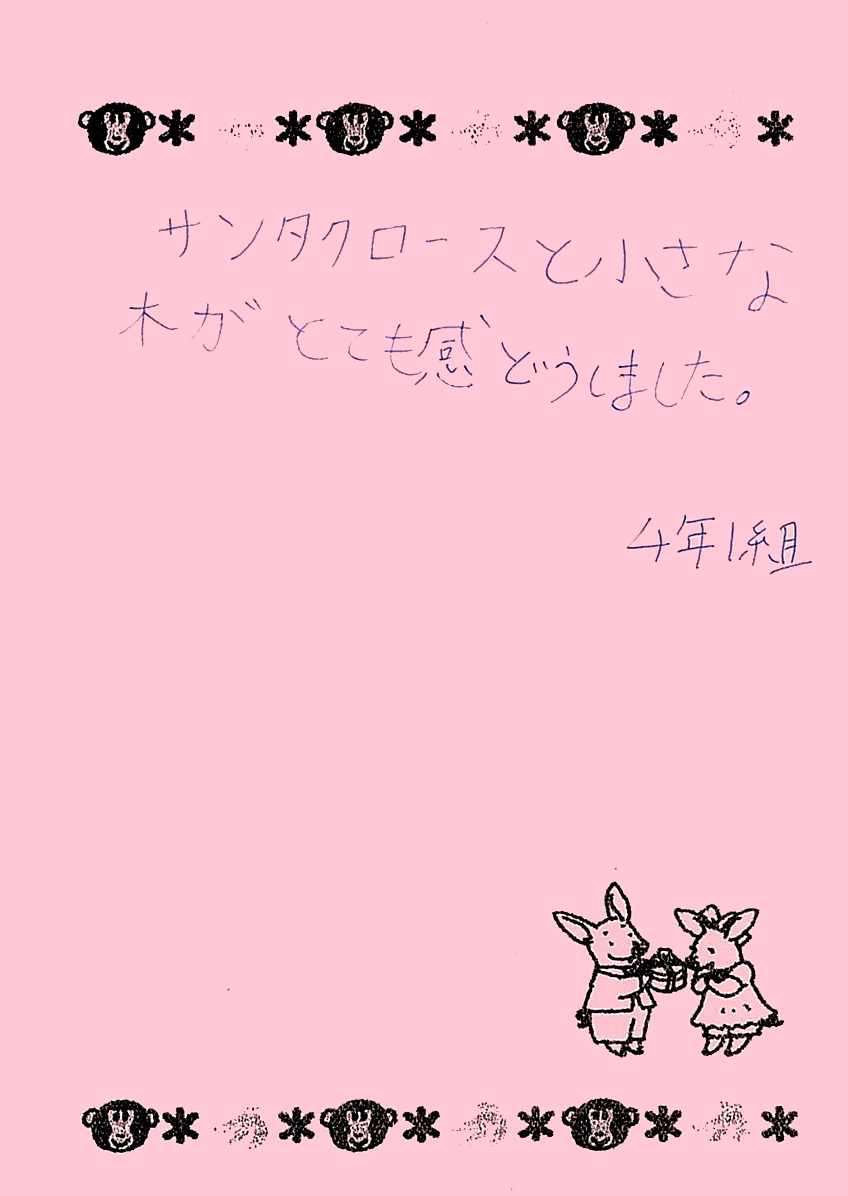 サンタクロースと小さな
木がとても感どうしました。
4年1組